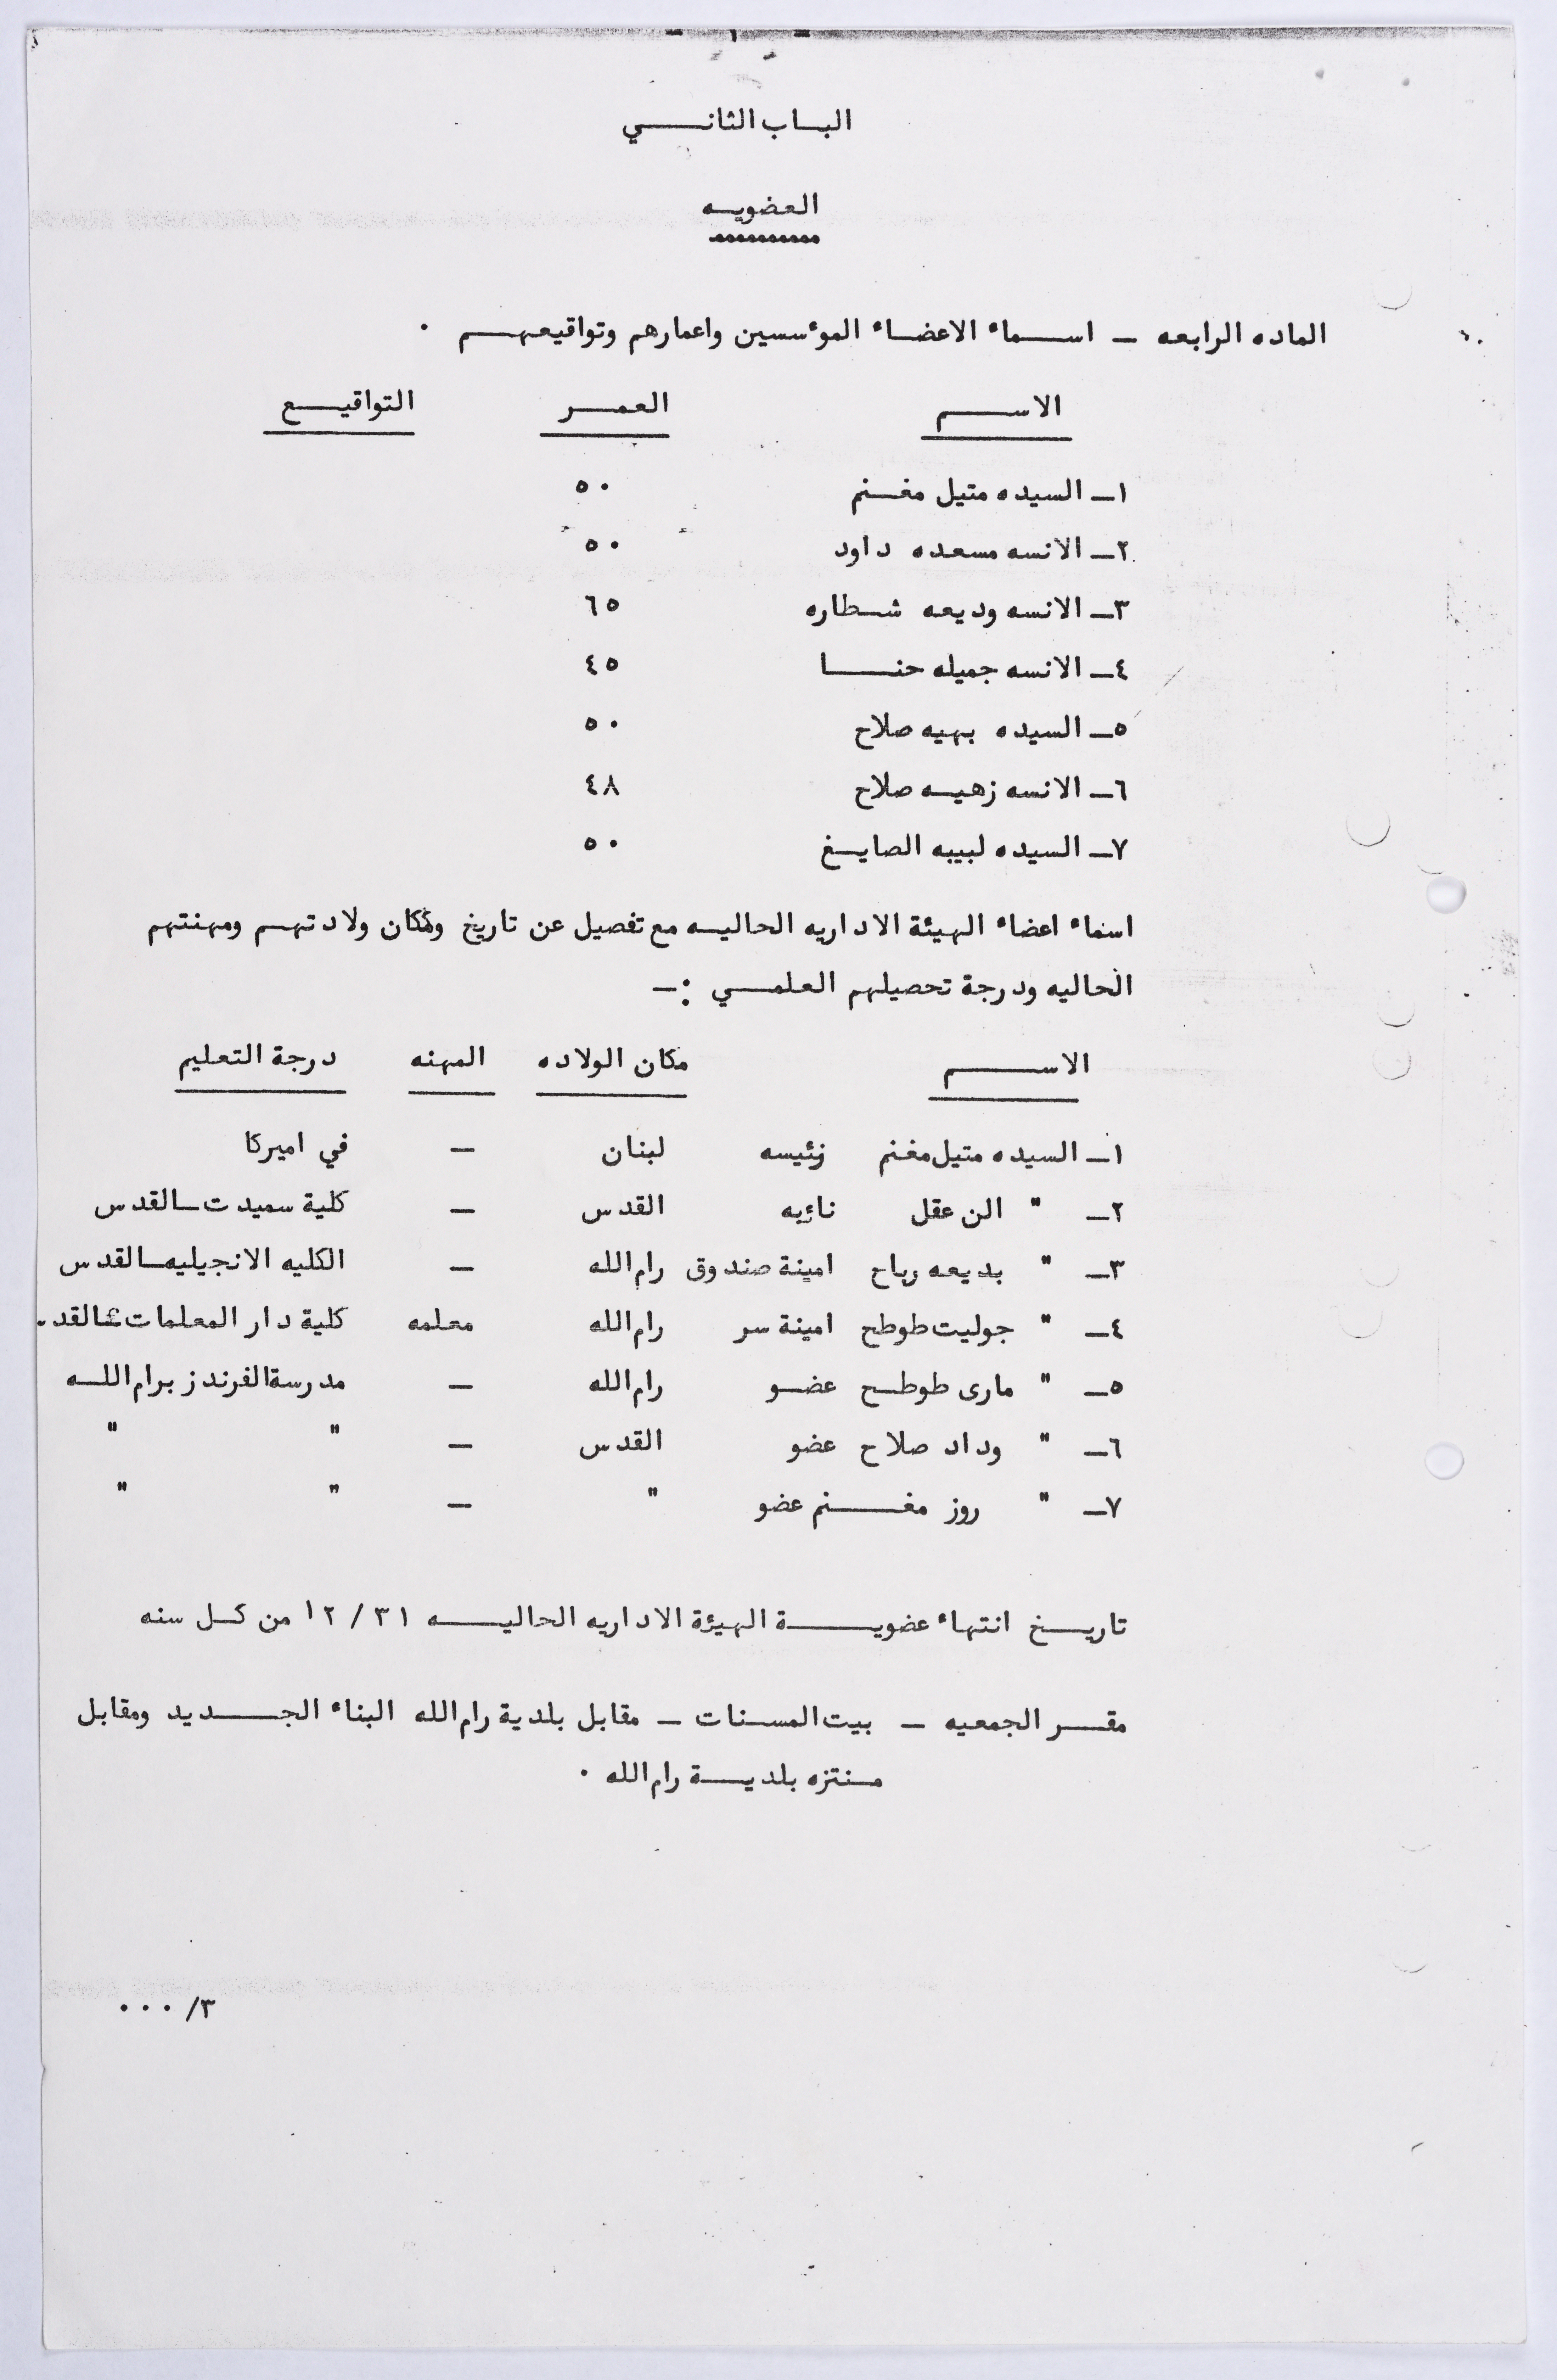 الباب الثاني
العضويه
الماده الرابعه - اسماء الاعضاء المؤسسين واعمارهم وتواقيعهم .
الاسم العمر التواقيع
١- السيده متيل مغنم ٥٠
٢- الانسه مسعده داود ٥٠
٣- الانسه وديعه شطاره ٦٥
٤- الانسه جميله حنا ٤٥
٥- السيده بهيه صلاح ٥٠
٦- الانسه زهيه صلاح ٤٨
٧- السيده لبيبه الصايغ ٥٠
اسماء اعضاء الهيئة الاداريه الحاليه مع تفصيل عن تاريخ ومكان ولادتهم ومهنتهم
الحاليه ودرجة تحصيلهم العلمي :-
الاسم مكان الولاده المهنه درجة التعليم
١- السيده متيل مغنم رئيسه لبنان - في اميركا
٢- " الن عقل نائبه القدس - كلية سميدت - القدس
٣- " بديعه رباح امينة صندوق رام الله - الكليه الانجيليه - القدس
٤- " جوليت طوطح امينة سر رام الله معلمه كلية دار المعلمات القدس
٥- " مارى طوطح عضو رام الله - مدرسة الفرندز برام الله
٦- " وداد صلاح عضو القدس - " "
٧- " روز مغنم عضو " - " "
تاريخ انتهاء عضوية الهيئة الاداريه الحاليه ٣١ / ١٢ من كل سنه
مقر الجمعيه - بيت المسنات - مقابل بلدية رام الله البناء الجديد ومقابل
منتزه بلدية رام الله .
٣/ ...